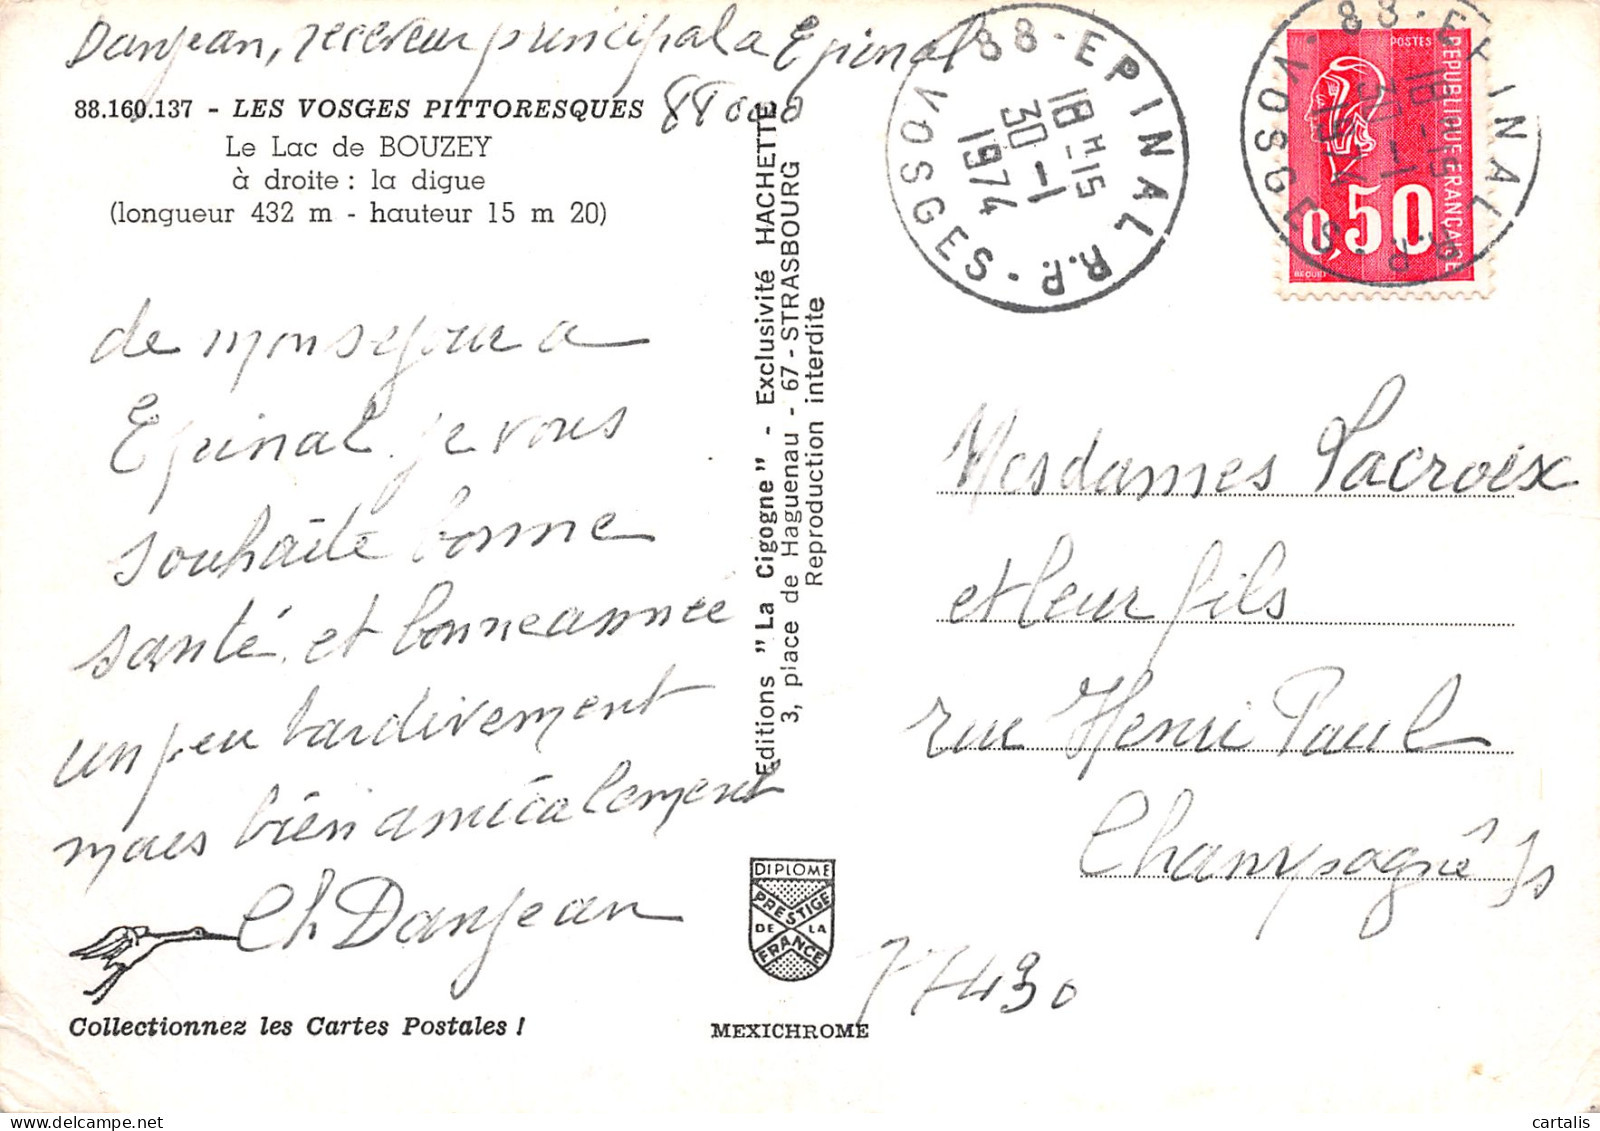 Danjean, receveur principal a Epinal
88000
88.160.137 - LES VOSGES PITTORESQUES
Le Lac de BOUZEY
à droite : la digue
(longueur 432 m - hauteur 15 m 20)
de mon sejour a
Epinal je vous
souhaite bonne
santé et bonne année
un peu tardivement
mais bien amicalement
Ch Danjean
Collectionnez les Cartes Postales !
Editions "La Cigogne" - Exclusivité HACHETTE
3, place de Haguenau - 67 - STRASBOURG
Reproduction interdite
DIPLOME
PRESTIGE
DE LA
FRANCE
MEXICHROME
88 - EPINAL R.P.
VOSGES
18 H 15
30 - 1
1974
88 - EPINAL R.P.
VOSGES
18 H 15
30 - 1
1974
POSTES
REPUBLIQUE FRANÇAISE
0,50
BEQUET
Mesdames Lacroix
et leur fils
rue Henri Paul
Champagne Ss
77430
cartalis